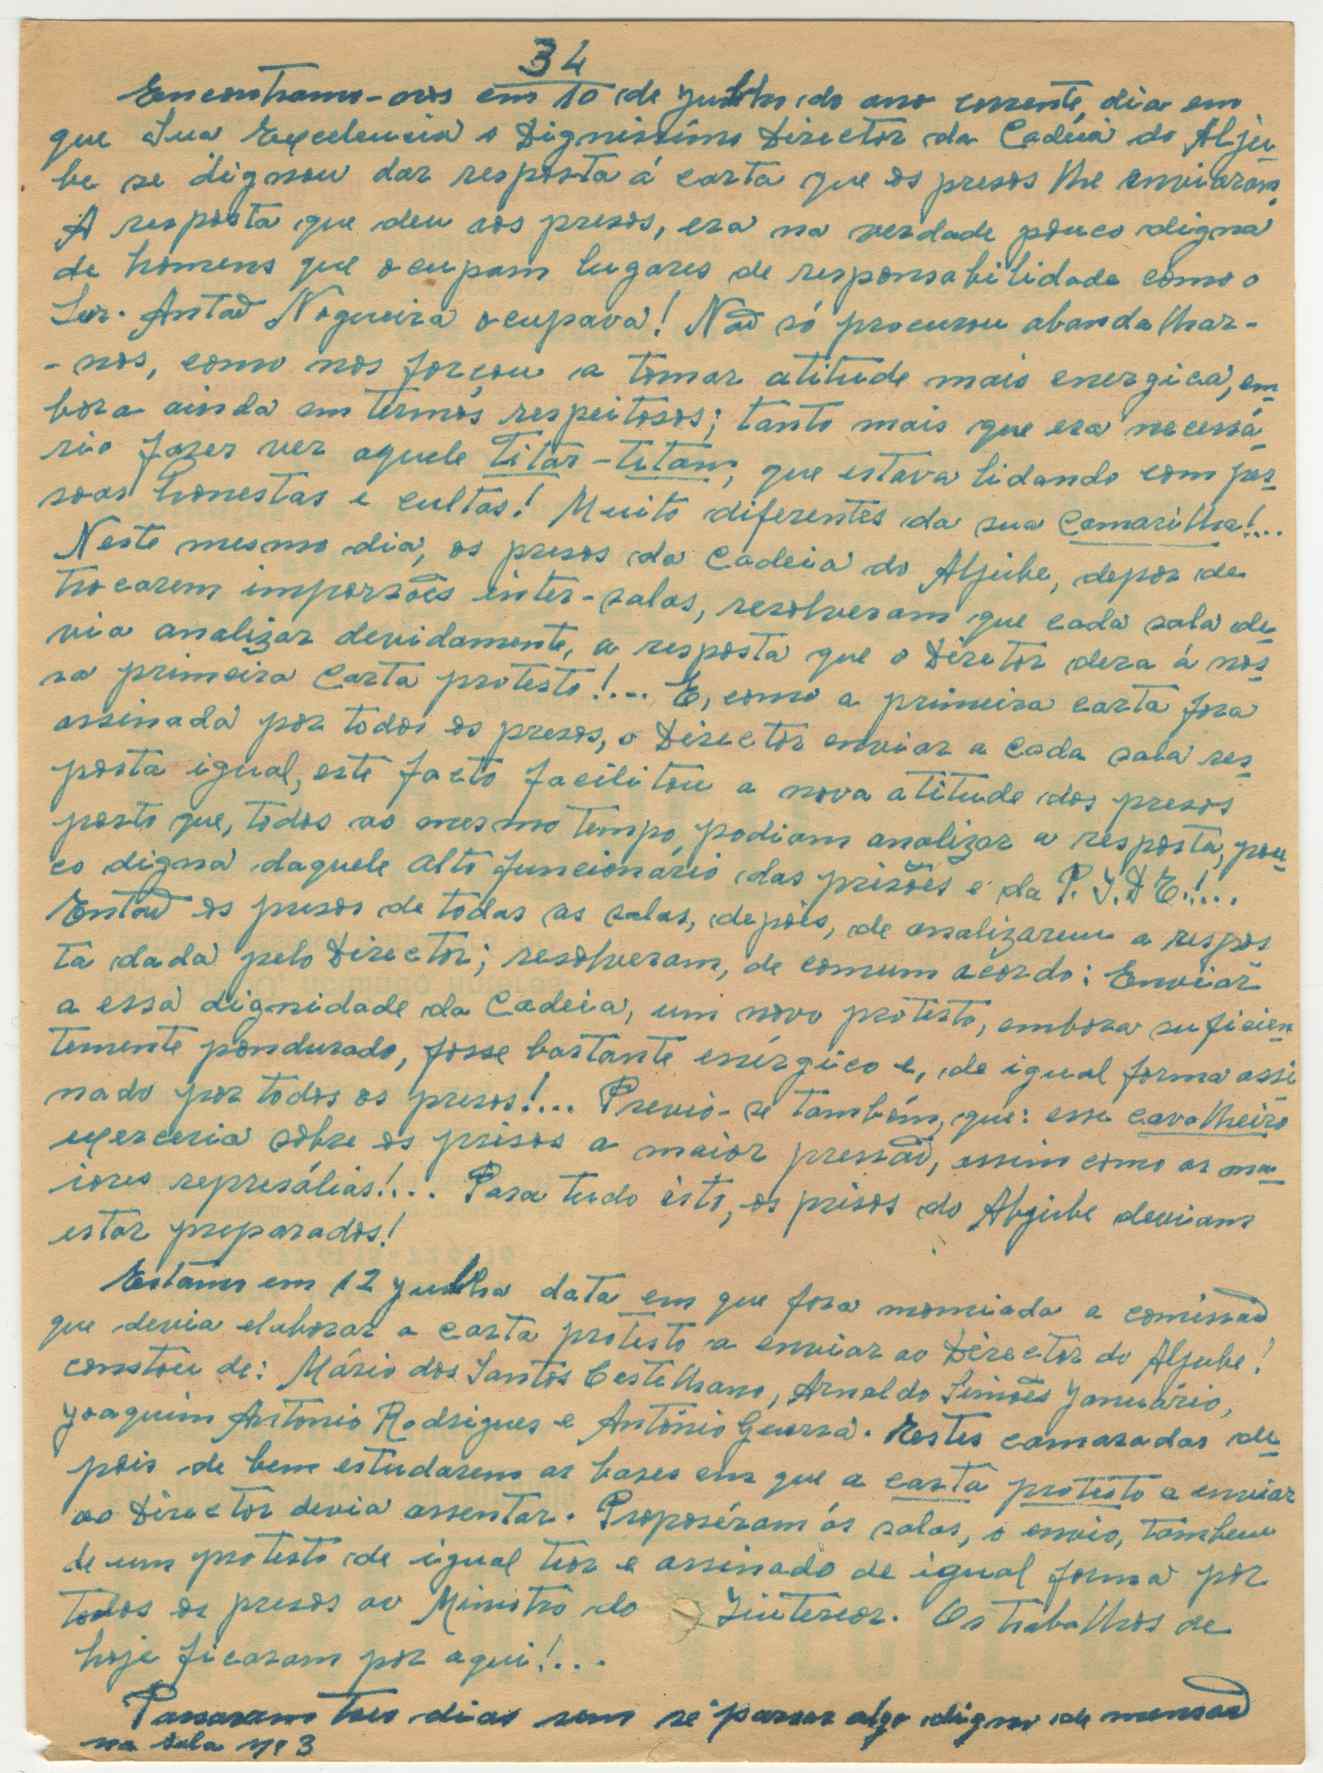 34
Encontramo-nos em 10 de Julho do ano corrente, dia em
que Sua Excelencia o Dignissimo Director da Cadeia do Alju
be se dignou dar resposta á carta que os presos lhe enviaram.
A resposta que deu aos presos, era na verdade pouco digna
de homens que ocupam lugares de responsabilidade como o
Snr. Antaõ Nogueira ocupava! Naõ só procurou abandalhar-
-nos, como nos forçou a tomar atitude mais energica, em
bora ainda em termos respeitosos; tanto mais que era necessá
rio fazer ver aquele Titar-titam, que estava lidando com pes
soas honestas e cultas! Muito diferentes da sua Camarilha!...
Neste mesmo dia, os presos da Cadeia do Aljube, depos de
trocarem imporsões inter-salas, resolveram que cada sala de
via analizar devidamente, a resposta que o Diretor dera á nos
sa primeira Carta protesto!... E, como a primeira carta fora
assinada por todos os presos, o Director enviar a cada sala res
posta igual, este facto facilitou a nova atitude dos presos
posto que, todos ao mesmo tempo, podiam analizar a resposta, pou
co digna daquele alto funcionário das prisões e da P.I.D.E.!...
Entaõ os presos de todas as salas, depois, de analizarem a respos
ta dada pelo Director; resolveram, de comum acordo: Enviar
a essa dignidade da Cadeia, um novo protesto, embora suficien
temente pondurado, fosse bastante enérgico e, de igual forma assi
nado por todos os presos!... Previo-se tambem, que: esse cavalheiro
exerceria sobre os prisos a maior pressaõ, assim como as ma
iores represálias!... Para tudo isto, os prisos do Aljube deviam
estar preparados!
Estamos em 12 Julho data em que fora momiada a comissaõ
que devia elaborar a carta protesto a enviar ao Director do Aljube!
constou de: Mário dos Santos Castelhano, Arnaldo Simões Januário,
Joaquim Antonio Rodrigues e António Guerra. Estes camaradas de
pois de bem estudarem as bases em que a carta protesto a enviar
ao Director devia assentar. Proposéram ás salas, o envio, tambem
de um protesto de igual teor e assinado de igual forma por
todos os presos ao Ministro do Iinterior. Os trabalhos de
hoje ficaram por aqui!...
Passaram tres dias sem se passar algo digno de mensaõ
na sala nº 3